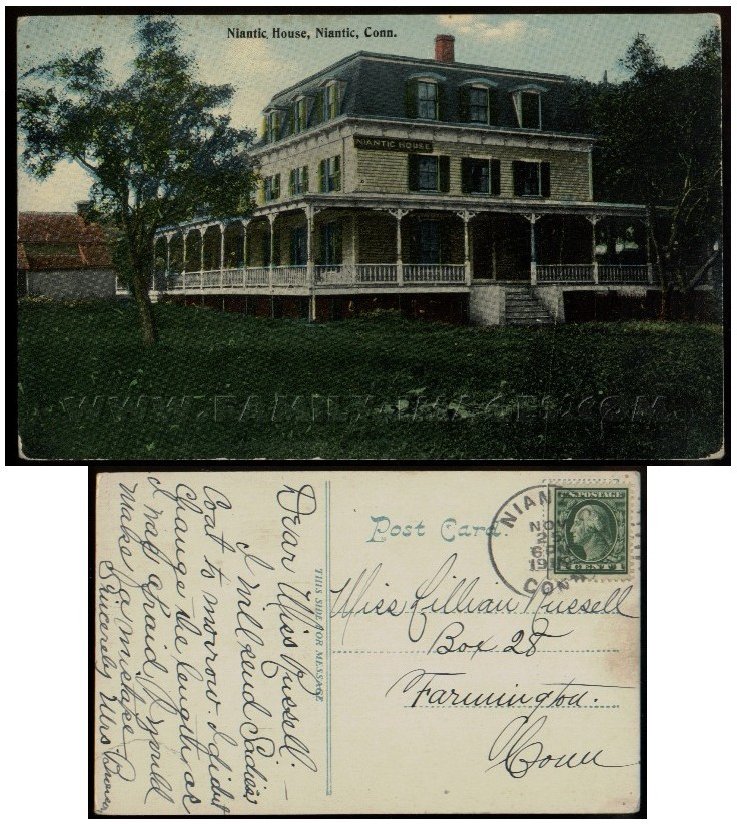 Niantic House, Niantic, Conn.
NIANTIC HOUSE
WWW.FAMILY-IMAGES.COM
Dear Miss Russell. —
I will send Sadie's
Coat to morrow. I didnt
Change the length as
I was afraid I would
Make a mistake
Sincerely Mrs
THIS SIDE FOR MESSAGE
Post Card.
NIAN
NOV
25
6P
191
CONN
U.S. POSTAGE
1 CENT 1
Miss Lillian Russell
Box 28
Farmington.
Conn